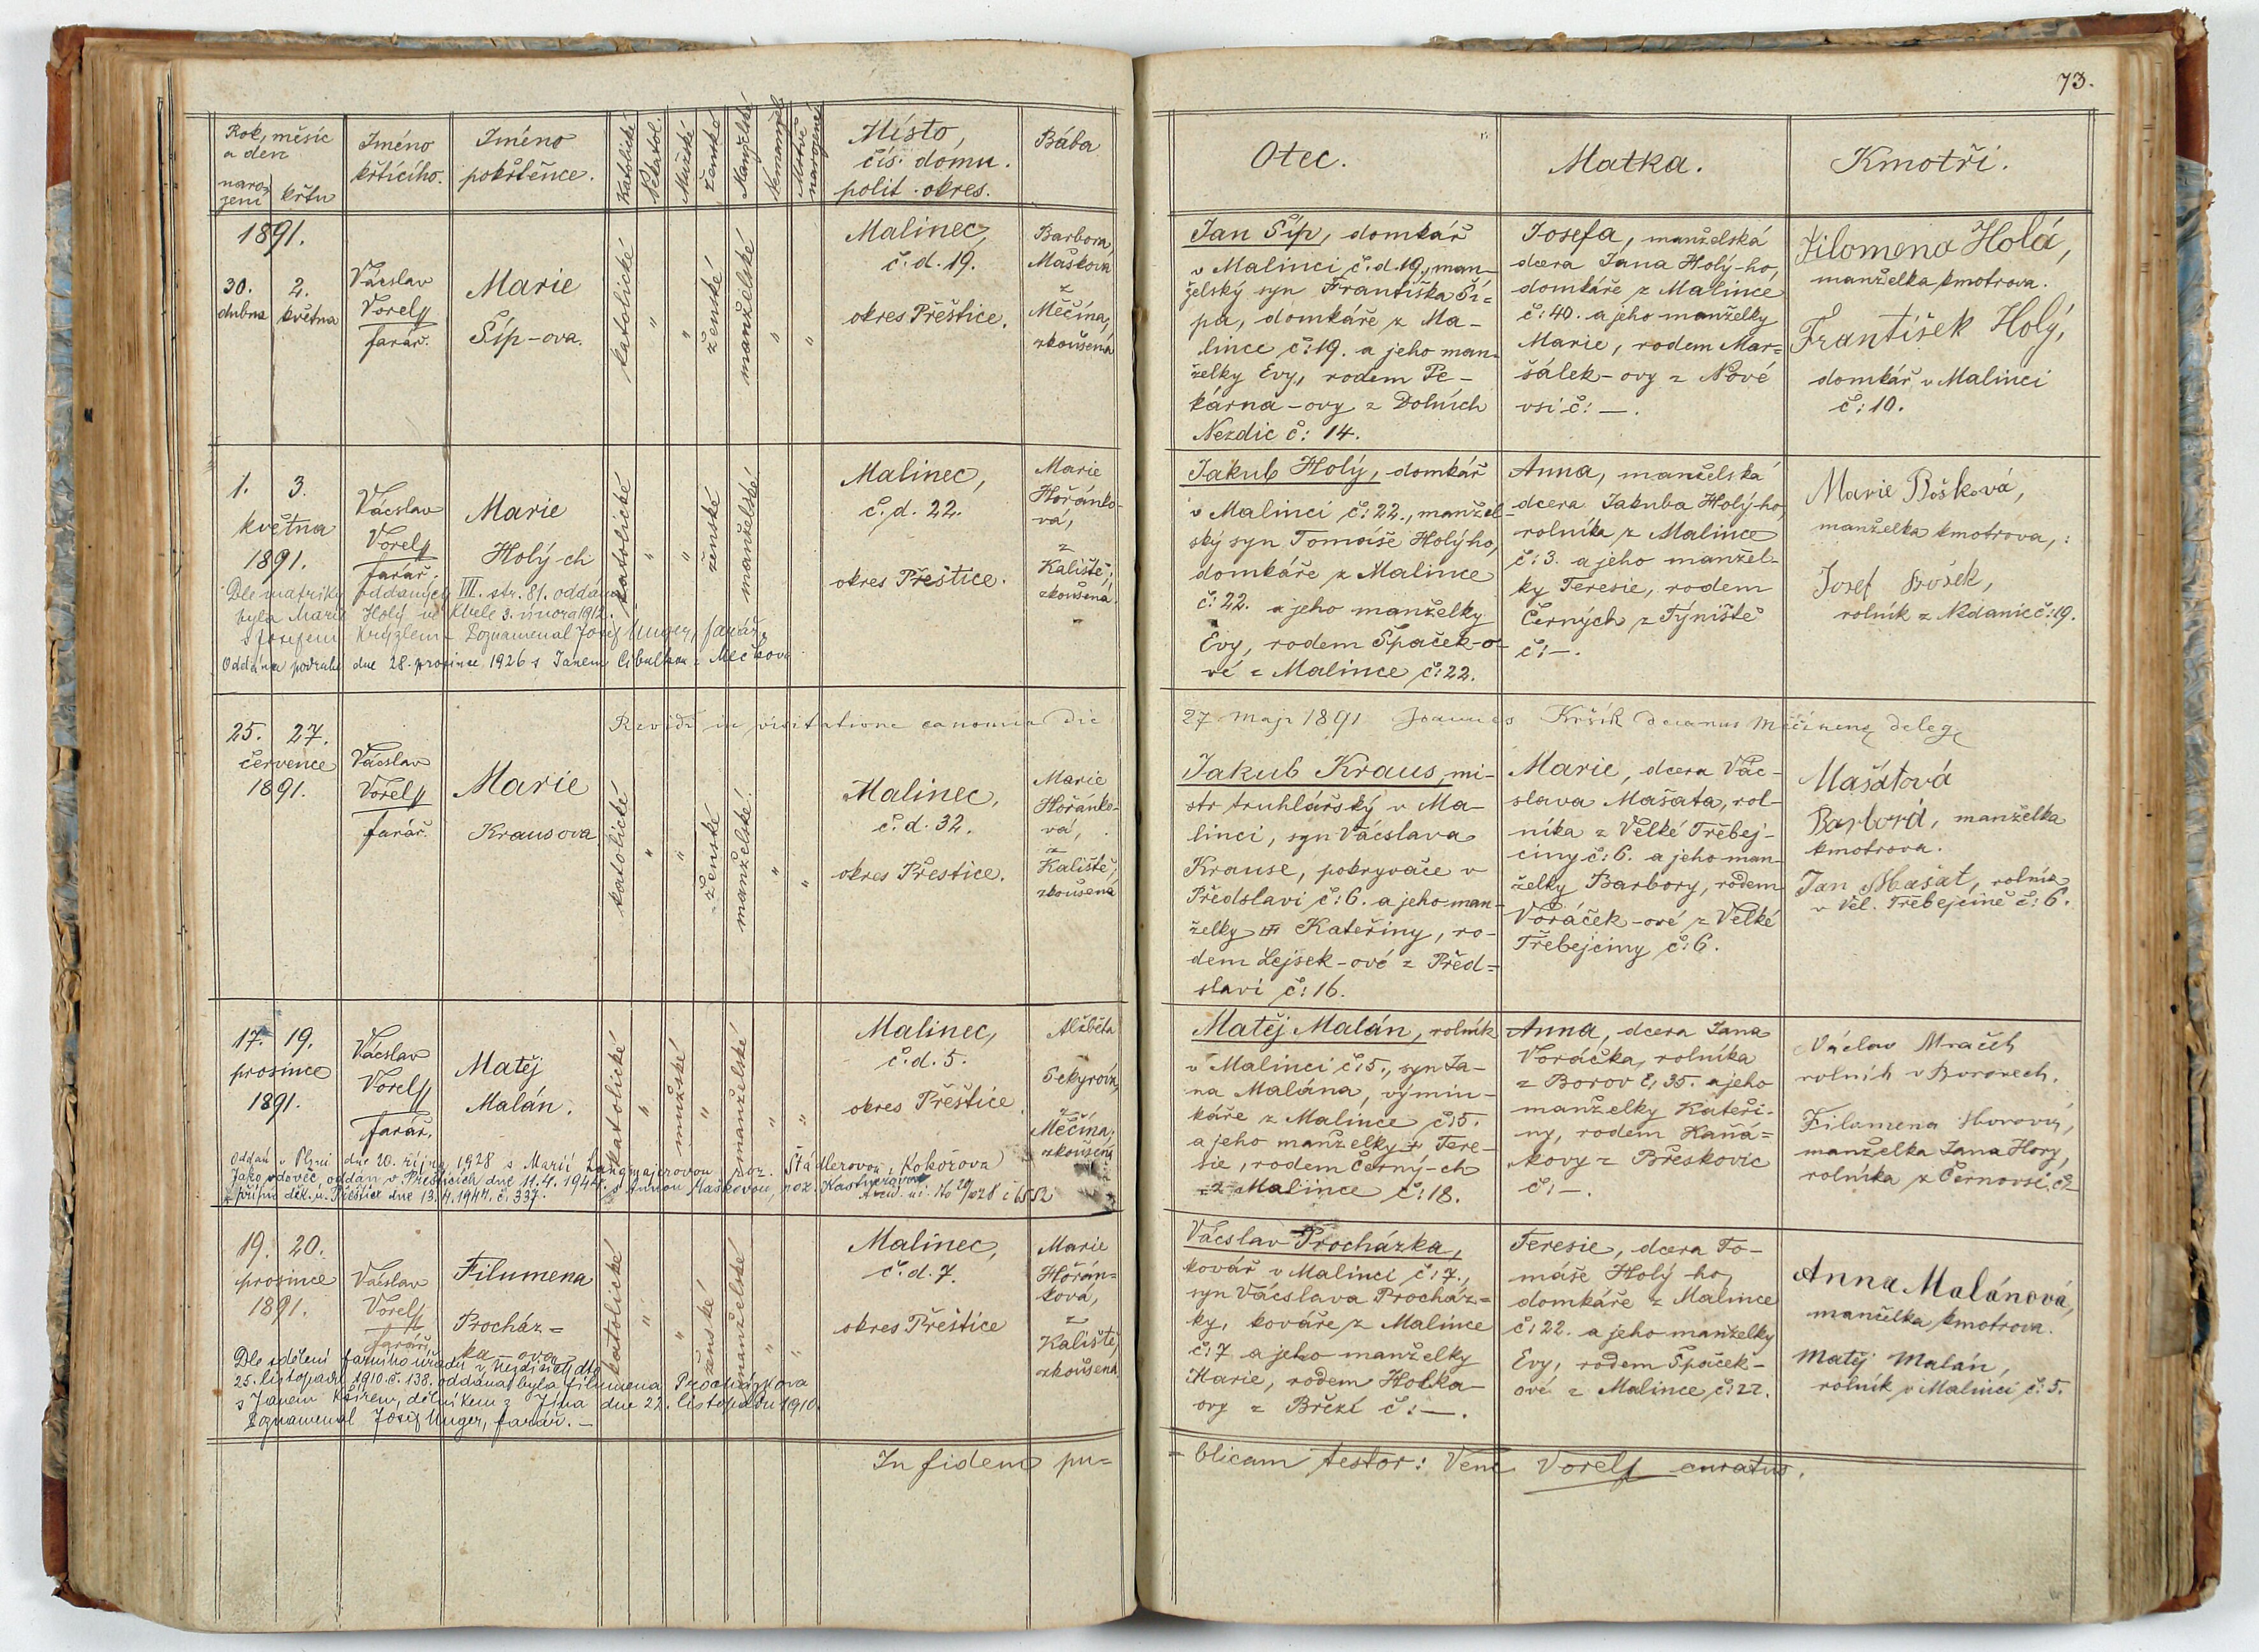 73.
Rok, měsíc
a den
naro-
zení
křtu
Jméno
křtícího.
Jméno
pokřtěnce.
Katolické
Nekatol.
Mužské
Ženské
Manželské
Nemanžel.
Mrtvě
narozené
Místo,
čís. domu.
polit. okres.
Bába
Otec.
Matka.
Kmotři.
1891.
30. 2.
dubna května
Vácslav
Vorel
farář.
Marie
Šíp-ova.
katolické
"
"
ženské
manželské
"
"
Malinec,
č. d. 19.
okres Přeštice.
Barbora
Mašková
z
Měčína,
zkoušená
Jan Šíp, domkář
v Malinci č. d. 19., man-
želský syn Františka Ší-
pa, domkáře z Ma-
lince č: 19. a jeho man-
želky Evy, rodem Pe-
kárna-ovy z Dolních
Nezdic č: 14.
Josefa, manželská
dcera Jana Holý-ho,
domkáře z Malince
č: 40. a jeho manželky
Marie, rodem Mar=
šálek-ovy z Nové
vsi č: —.
Filomena Holá,
manželka kmotrova.
František Holý,
domkář v Malinci
č: 10.
1. 3.
května
1891.
Vácslav
Vorel
farář.
Marie
Holý-ch
katolické
"
"
ženské
manželské
Malinec,
č. d. 22.
okres Přeštice.
Marie
Hořánko-
vá,
z
Kaliště,
zkoušená.
Dle matriky oddaných VII. str. 81. oddána
byla Marie Holý ve 3. února 1912.
s Josefem Kryglem - Poznamenal Josef Unger, farář.
Oddána podruhé dne 28. prosince 1926 s Janem Cibulkou z Měčkova
Jakub Holý, domkář
v Malinci č: 22., manžel-
ský syn Tomáše Holýho,
domkáře z Malince
č: 22. a jeho manželky
Evy, rodem Špaček-o-
vé z Malince č: 22.
Anna, manželská
dcera Jakuba Holý-ho,
rolníka z Malince
č: 3. a jeho manžel-
ky Teresie, rodem
Černých z Týniště
č: —.
Marie Bošková,
manželka kmotrova,
Josef Bošek,
rolník z Nedanic č: 19.
Revidi in visitatione canonica die 27 maji 1891 Joannes Kršík decanus deleg
25. 27.
července
1891.
Vácslav
Vorel
farář.
Marie
Krausova
katolické
"
"
ženské
manželské.
"
"
Malinec,
č. d. 32.
okres Přestice.
Marie
Hořánko-
vá,
z
Kaliště,
zkoušená
Jakub Kraus, mi-
str truhlářský v Ma-
linci, syn Vácslava
Krause, pokryvače v
Předslavi č: 6. a jeho man-
želky Kateřiny, ro-
dem Lejsek-ové z Před=
slavi č: 16.
Marie, dcera Vác-
slava Mašata, rol-
níka z Velké Třebej-
ciny č: 6. a jeho man-
želky Barbory, rodem
Voráček-ové z Velké
Třebejciny č: 6.
Mašatová
Barbora, manželka
kmotrova.
Jan Mašat, rolník
v Vel. Třebejcině č: 6.
17. 19.
prosince
1891.
Vácslav
Vorel
farář.
Matěj
Malán.
katolické
"
mužské
"
manželské
"
"
Malinec,
č. d. 5.
okres Přeštice
Alžběta
Sekyrova,
z
Měčína,
zkoušená
Oddán v Plzni dne 20. října 1928 s Marií Langmajerovou roz. Štádlerovou z Kokořova
Jako vdovec oddán v Přešticích dne 11. 4. 1947. s Annou Maškovou, roz.
přípis děk. ú. Přeštice dne 13. 4. 1947. č. 337.
Matěj Malán, rolník
v Malinci č: 5., syn Ja-
na Malána, výmin-
káře z Malince č: 5.
a jeho manželky Tere-
sie, rodem Černý-ch
z Malince č: 18.
Anna, dcera Jana
Voráčka, rolníka
z Borov č, 35. a jeho
manželky Kateři-
ny, rodem Kaňá=
kovy z Břeskovic
č: —.
Václav Mraček
rolník v Borovech.
Filomena Horová,
manželka Jana Hory,
rolníka z Černovsi č.
19. 20.
prosince
1891.
Vácslav
Vorel
farář.
Filumena
Procház=
ka-ova
katolické
"
"
ženské
manželské
"
"
Malinec,
č. d. 7.
okres Přeštice
Marie
Hořán=
ková,
z
Kaliště,
zkoušená
Dle sdělení farního úřadu v Nezdicích dto
25. listopadu 1910. č. 138. oddána byla Filumena Procházkova
s Janem Kšírem, dělníkem z Jína dne 22. listopadu 1910.
Poznamenal Josef Unger, farář. —
Vácslav Procházka,
kovář v Malinci č: 7.,
syn Vácslava Procház=
ky, kováře z Malince
č: 7 a jeho manželky
Marie, rodem Holka-
ovy z Březí č: —.
Teresie, dcera To-
máše Holý-ho,
domkáře z Malince
č: 22. a jeho manželky
Evy, rodem Špaček-
ové z Malince č: 22.
Anna Malánová,
manželka kmotrova.
Matěj Malán,
rolník v Malinci č: 5.
In fidem pu=
=blicam testor: Venc Vorel curatus.